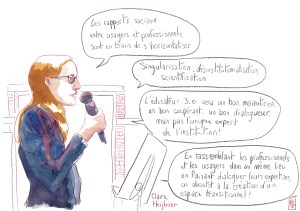 Ces rapports sociaux
entre usagers et professionnels
sont en train de s'horizontaliser.
Singularisation, désinstitutionnalisation,
scientifisation
L'éducateur 3.0 sera un bon médiateur,
un bon coopérant, un bon dialogueur,
mais pas l'unique expert
de l'institution!
En rassemblant les professionnels
et les usagers dans un même lieu
en faisant dialoguer leurs expertises,
on aboutit à la création d'un
espace transitionnel!
Claire
Heijboer